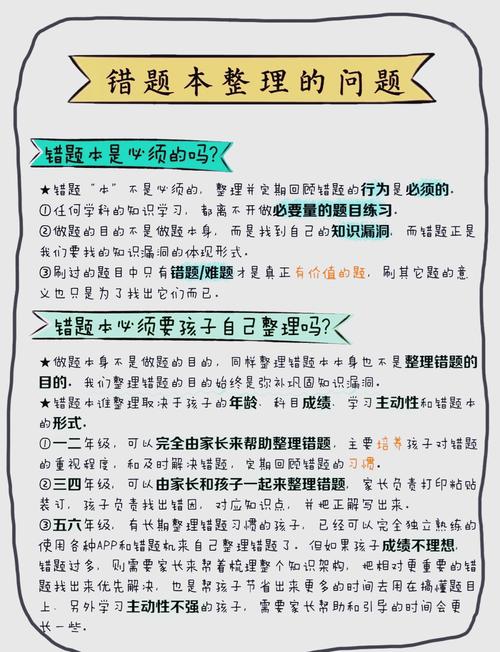 错题本整理的问题
错题本是必须的吗?
★错题“本”不是必须的, 整理并定期回顾错题的行为是必须的.
①任何学科的知识学习, 都离不开做必要量的题目练习.
②做题的目的不是做题本身, 而是找到自己的知识漏洞, 而错题正是
我们要找的知识漏洞的体现形式.
③刷过的题目中只有错题/难题才是真正有价值的题, 刷其它题的意
义也只是为了找出它们而已.
错题本必须要孩子自己整理吗?
★做题本身不是做题的目的, 同样整理错题本本身也不是整理错题的
目的. 我们整理错题的目的始终是弥补巩固知识漏洞.
★错题本谁整理取决于孩子的年龄、科目成绩、学习主动性和错题本
的形式.
①一二年级, 可以完全由家长来帮助整理错题, 主要培养孩子对错题
的重视程度, 和及时解决错题, 定期回顾错题的习惯.
②三四年级, 可以由家长和孩子一起来整理错题, 家长负责打印粘贴
装订, 孩子负责找出错因, 对应知识点, 并把正解写出来.
③五六年级, 有长期整理错题习惯的孩子, 已经可以完全独立熟练的
使用各种APP和错题机来自己整理错题了. 但如果孩子成绩不理想,
错题过多, 则需要家长来帮着梳理整个知识架构, 把相对更重要的错
题找出来优先解决, 也是帮孩子节省出来更多的时间去用在搞懂题目
上. 另外学习主动性不强的孩子, 需要家长帮助和引导的时间会更
长一些.